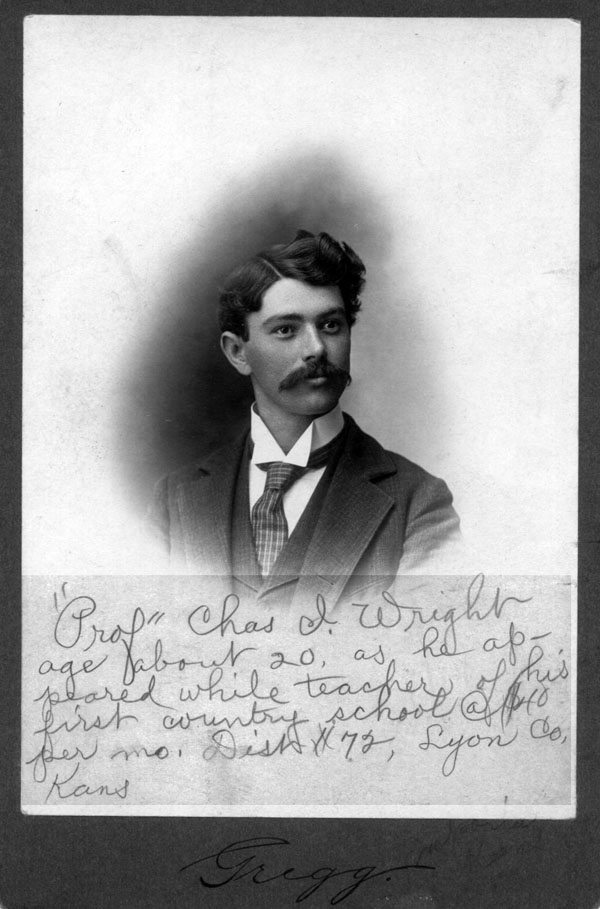 "Prof" Chas I. Wright
age about 20, as he ap-
peared while teacher of his
first country school @ $40
per mo. Dist #72, Lyon Co,
Kans
Gregg.